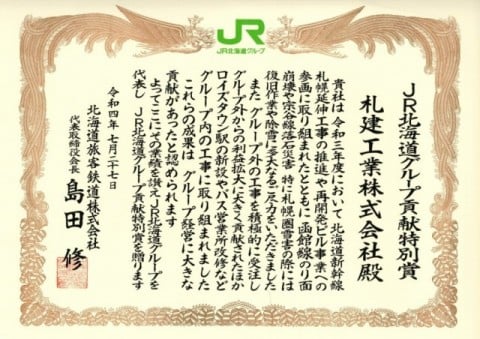 JR
JR北海道グループ
JR北海道グループ貢献特別賞
札建工業株式会社殿
貴社は 令和三年度において 北海道新幹線
札幌延伸工事の推進や再開発ビル事業への
参画に取り組まれたとともに 函館線のり面
崩壊や宗谷線落石災害 特に札幌圏雪害の際には
復旧作業や除雪に多大なるご尽力をいただきました
また グループ外の工事を積極的に受注し
グループ外からの利益拡大に大きく貢献されたほか
ロイズタウン駅の新設やバス営業所改修など
グループ内の工事に取り組まれました
これらの成果は グループ経営に大きな
貢献があったと認められます
よってここにその業績を讃え JR北海道グループを
代表し JR北海道グループ貢献特別賞を贈ります
令和四年 七月二十七日
北海道旅客鉄道株式会社
代表取締役会長 島田 修